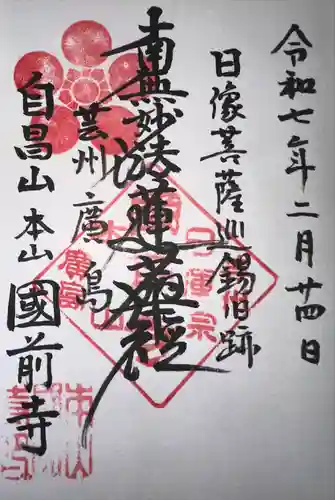 令和七年二月廿四日
日像菩薩巡錫旧跡
南無妙法蓮華経
芸州廣島
自昌山 本山 國前寺